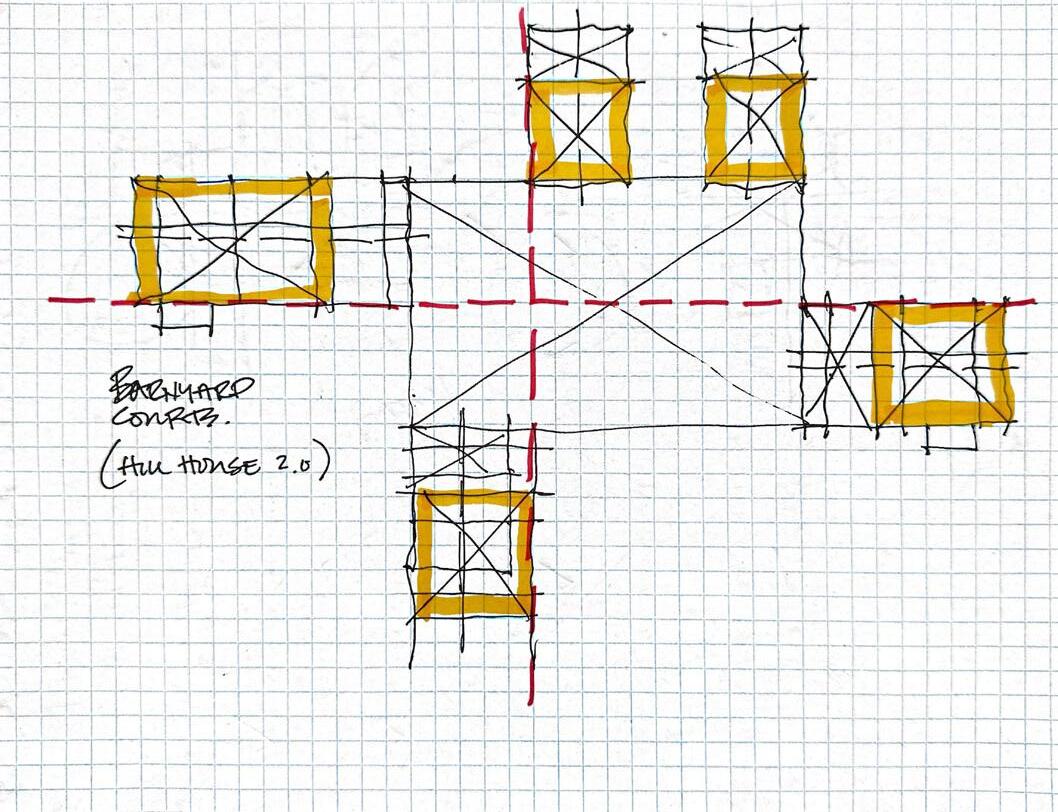 BARNYARD
COURTS.
(HILL HOUSE 2.0)